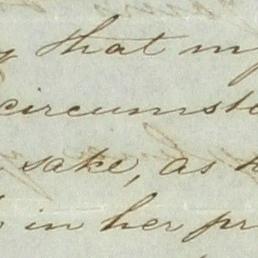 that my
circumst
sake, as
in her pr